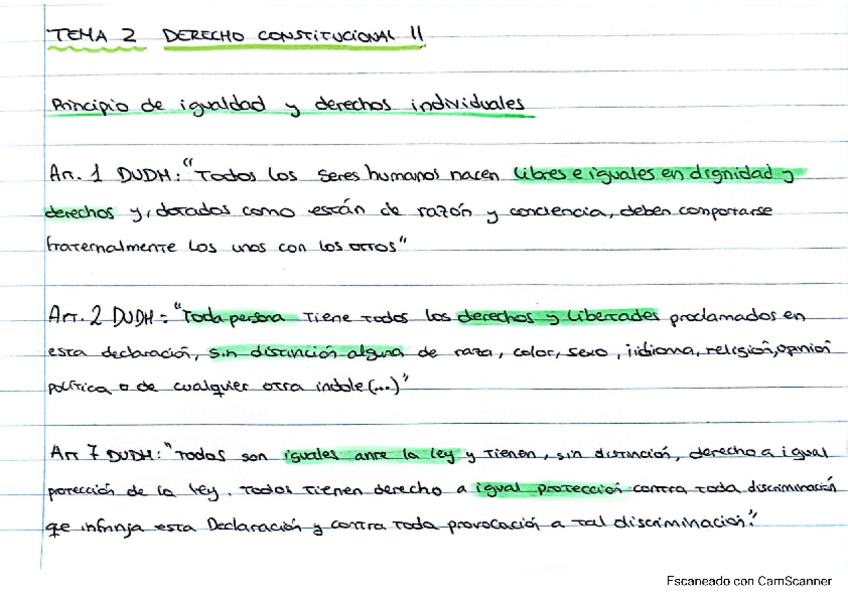 TEMA 2 DERECHO CONSTITUCIONAL II
Principio de igualdad y derechos individuales
Art. 1 DUDH: "Todos los seres humanos nacen libres e iguales en dignidad y
derechos y, dotados como están de razón y conciencia, deben comportarse
fraternalmente los unos con los otros"
Art. 2 DUDH: "Toda persona tiene todos los derechos y libertades proclamados en
esta declaración, sin distinción alguna de raza, color, sexo, idioma, religión, opinión
política o de cualquier otra índole (...)"
Art 7 DUDH: "Todos son iguales ante la ley y tienen, sin distinción, derecho a igual
protección de la ley. Todos tienen derecho a igual protección contra toda discriminación
qe infrinja esta Declaración y contra toda provocación a tal discriminación."
Escaneado con CamScanner